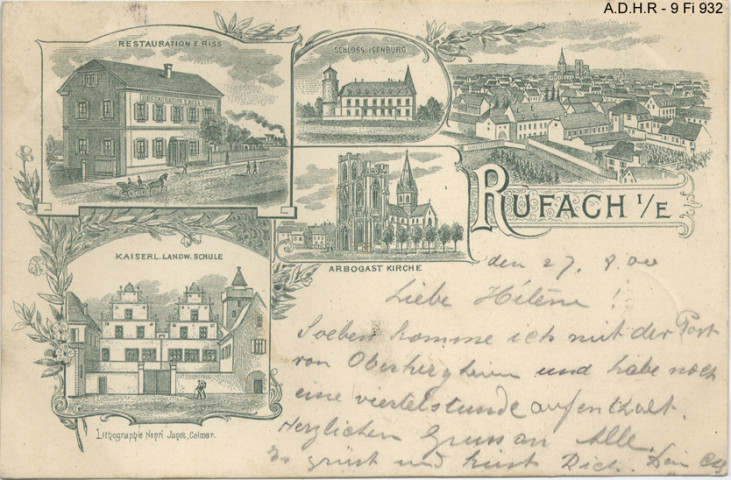 A.D.H.R - 9 Fi 932
RESTAURATION F. RISS
SCHLOSS ISENBURG
RUFACH I/E
ARBOGAST KIRCHE
KAISERL. LANDW. SCHULE
den 27. 9. 00
Liebe Hélène !
Soeben komme ich mit der Post
von Oberhergheim und habe noch
eine viertelstunde aufenthalt.
Herzlichen Gruss an Alle.
Es grüst und küst Dich. Dein
Lithographie Henri Jagos, Colmar.